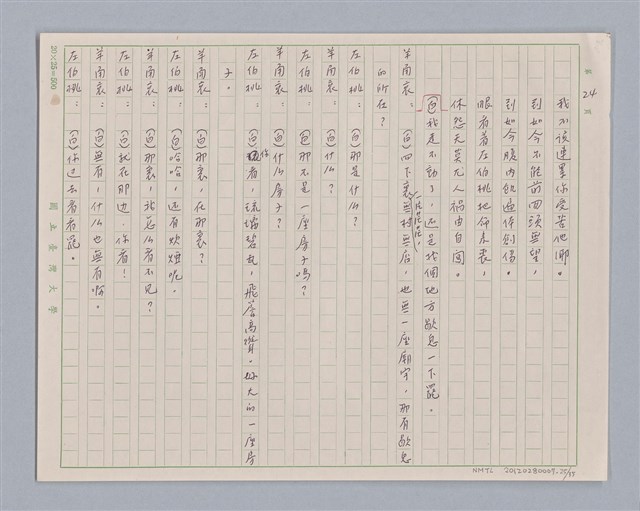 第 24 頁
我不该連累你受苦他鄉。
到如今不能前四頭無望，
到如今腹內飢遍体創傷。
眼看着左伯桃地命未喪，
休怨天莫尤人禍由自闯。
(白)我走不動了，还是找個地方歇息一下罷。
羊角哀：(白)四下裏無村無店，也無一座廟宇，那有歇息
的所在？
左伯桃：(白)那是什么？
羊角哀：(白)什么？
左伯桃：(白)那不是一座房子嗎？
羊角哀：(白)什么房子？
左伯桃：(白)你看，琉璃碧瓦，飛簷高聳，好大的一座房
子。
羊角哀：(白)那裏，在那裏？
左伯桃：(白)哈哈，还有炊煙呢。
羊角哀：(白)那裏，我怎么看不見？
左伯桃：(白)就在那边，你看！
羊角哀：(白)無有，什么也無有啊。
左伯桃：(白)你过去看看罷。
20×25=500
國立臺灣大學
NMTL 20120280009-25/35